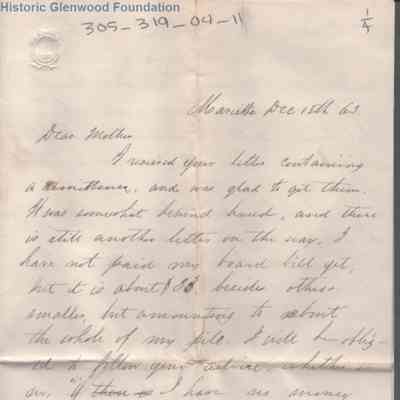 Historic Glenwood Foundation
305-319-04-11
1/4
Marietta Dec 15th 63.
Dear Mother
I received your letter containing
a remittance, and was glad to get them.
It was somewhat behind hand, and there
is still another letter on the way. I
have not paid my board bill yet,
but it is about besides other
smaller, but amounting to about
the whole of my pile. I will be oblig-
ed to follow your advice, whether or
no. "If I have no money